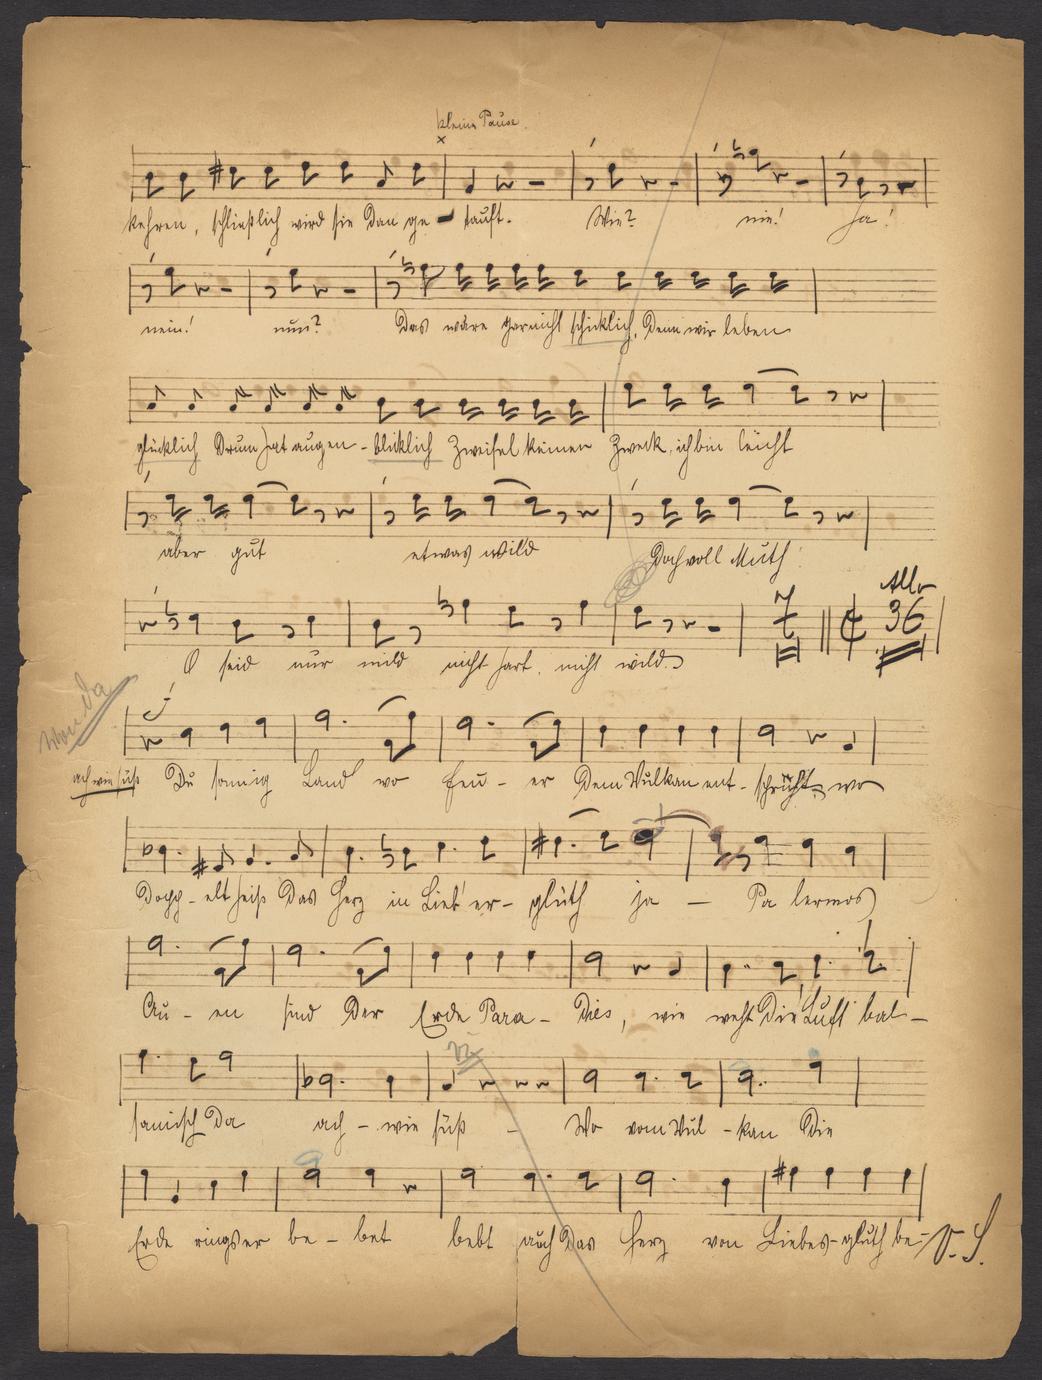 kleine Pause
kehren, schließlich wird sie dan ge - tauft. Wie? nie! Ja!
nein! nun? Das wäre garnicht schicklich, denn wir leben
glücklich Drum hat augen - blicklich Zweifel keinen Zweck, ich bin leicht
aber gut etwas wild Doch voll Muth!
Allo
7 36
O seid nur mild nicht hart, nicht wild.
ach wie süß Du sonnig Land wo Feu - er dem Vulkan ent - sprüht, wo
Dopp - elt heiß das Herz in Lieb' er - glüth ja — Pa lermos
Au - en sind der Erde Para - dies, wie weht die Luft bal -
samisch da ach - wie süß - Wo vom Vul - kan die
Erde rings er be - bet bebt auch das Herz von Liebes - gluth be - V. S.